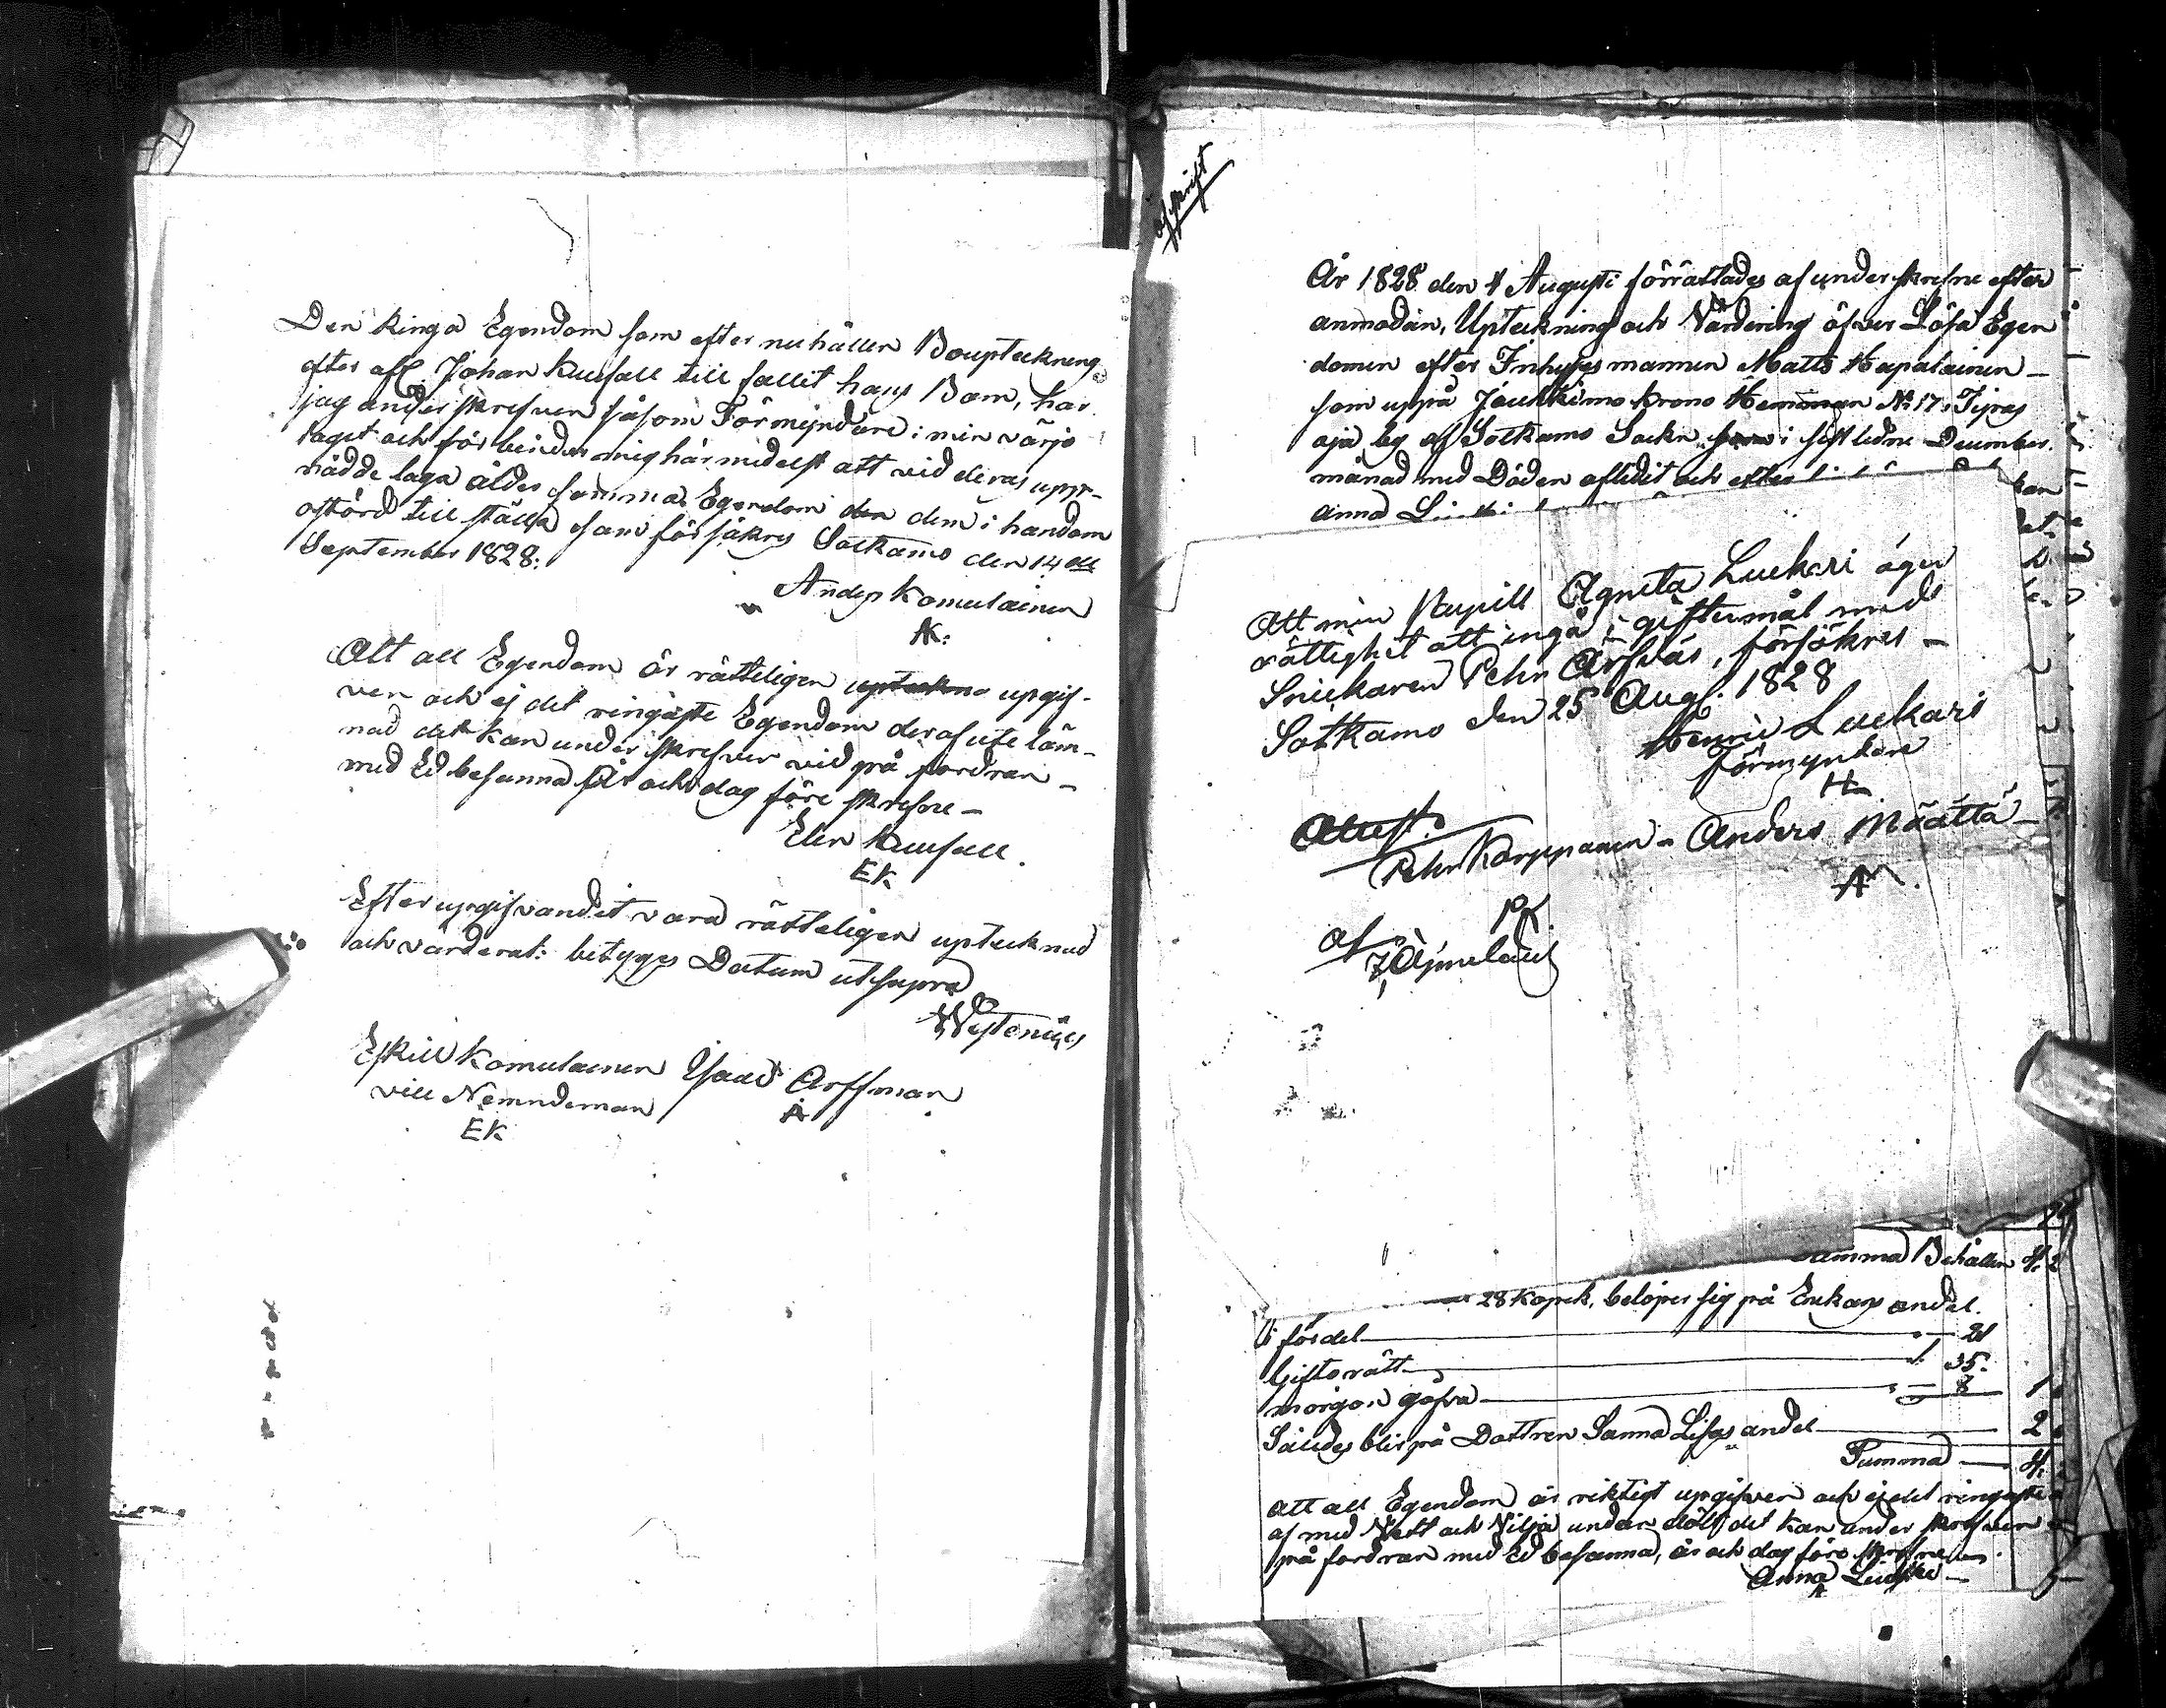 Den ringa Egendom som efter nu hållen Bouptekning
efter afl. Johan Kuusall till fallit hans Barn, har
jag under skrefven såsom Förmyndare i min värjo
taget och för binder mig härmedelst att vid deras upp-
nådde laga ålder samma Egendom den dem i handom
ostörd till ställa som försäkres Sotkamo den 14de
September 1828:
Anders Komulainen
AK:
Att all Egendom är rätteligen uptekna upgif-
ven och ej det ringaste Egendom deraf ute läm-
nad det kan under skrefven vid på fordran
med Ed besanna År och dag före skrefne
Elin Kuusall.
EK
Efter upgifvandet vara rätteligen uptecknad
och värderat: betyges Datum ut supra
Westenius
Eskill Komulainen Isaac Arffman
vice Nämndeman
EK
Afskrift
År 1828 den 4 Augusti förrättades af underskrefne efter
anmodan, Upteckning och Värdering öfver Lösa Egen
domen efter Inhyses mannen Matts Hapalainen
som uppå Jouhkimo krono Hemman No 17 i Tipas
oja by af Sotkamo Sockn som i sist ledne December
månad med Döden aflidit och efter
anna
Att min Pupill Agneta Luckari äger
rättighet att ingå i giftermål med
Snickaren Pehr Arfvas, försäkres
Sotkamo den 25 Aug. 1828
Henric Luckari
förmyndare
H
Attest.
Pehr Karppanen Anders Määttä
AM.
PK.
Summa Behållen 4.2
28 Kopek, belöper sig på Enkans andel.
i fördel 21
Giftorätt 1 35.
morgon gåfva 8 1
Således blir på Dottren Sanna Lisas andel 2
Summa 4.
Att all Egendom är riktigt upgifven och ej det ringaste
af med Vett och Vilja undan dölt det kan under skrefven
på fordran med Ed besanna, år och dag före skrefne
Anna